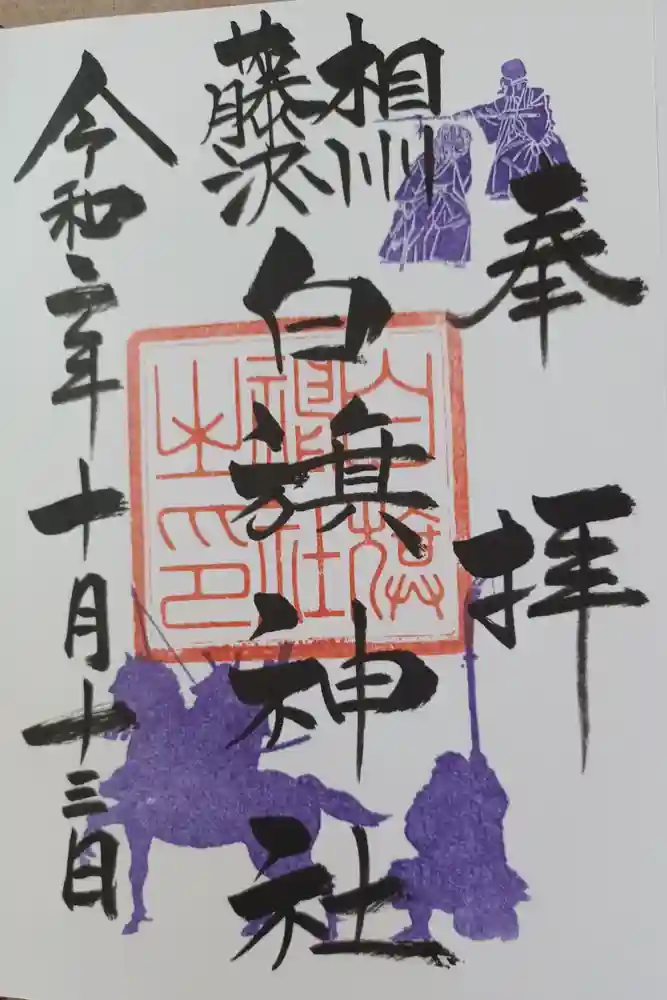 奉拝
相州
藤沢
白旗神社
白旗
神社
之印
令和二年十月十三日